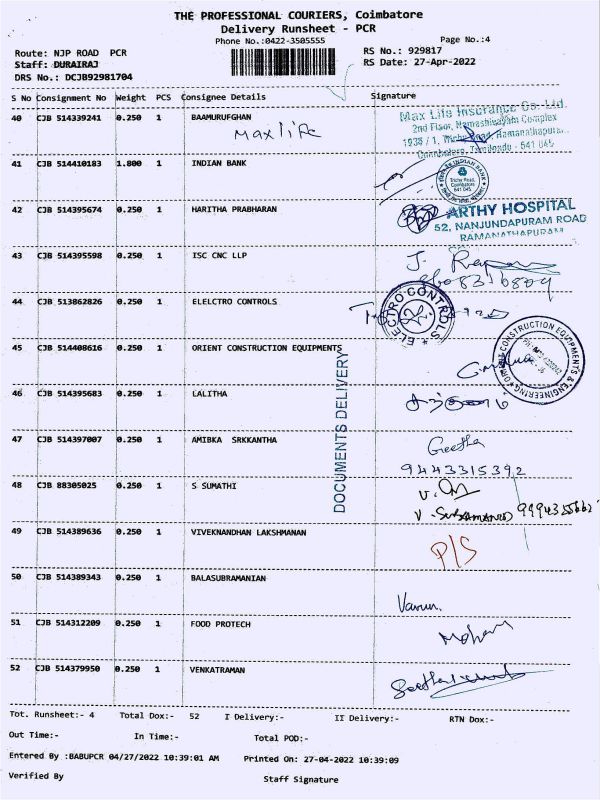 THE PROFESSIONAL COURIERS, Coimbatore
Delivery Runsheet - PCR
Phone No.:0422-3505555
Page No.:4
Route: NJP ROAD PCR
RS No.: 929817
Staff: DURAIRAJ
RS Date: 27-Apr-2022
DRS No.: DCJB92981704
S No Consignment No Weight PCS Consignee Details Signature
40 CJB 514339241 0.250 1 BAAMURUFGHAN
Max life
Max Life Insurance Co. Ltd.
2nd Floor, Namashivayam Complex
1935 / 1, Trichy Road, Ramanathapuram.
Coimbatore, Tamilnadu - 641 045
41 CJB 514410183 1.800 1 INDIAN BANK
INDIAN BANK
Trichy Road,
Coimbatore
641 045
42 CJB 514395674 0.250 1 HARITHA PRABHARAN
ARTHY HOSPITAL
52, NANJUNDAPURAM ROAD
RAMANATHAPURAM
43 CJB 514395598 0.250 1 ISC CNC LLP
44 CJB 513862826 0.250 1 ELELCTRO CONTROLS
ELECTRO CONTROLS
45 CJB 514408616 0.250 1 ORIENT CONSTRUCTION EQUIPMENTS
CONSTRUCTION EQUIPMENTS & ENGINEERING
DOCUMENTS DELIVERY
46 CJB 514395683 0.250 1 LALITHA
47 CJB 514397007 0.250 1 AMIBKA SRKKANTHA
Geetha
9443315392
48 CJB 88305025 0.250 1 S SUMATHI
49 CJB 514389636 0.250 1 VIVEKNANDHAN LAKSHMANAN
P/S
50 CJB 514389343 0.250 1 BALASUBRAMANIAN
Varun.
51 CJB 514312209 0.250 1 FOOD PROTECH
Mohan
52 CJB 514379950 0.250 1 VENKATRAMAN
Tot. Runsheet:- 4 Total Dox:- 52 I Delivery:- II Delivery:- RTN Dox:-
Out Time:- In Time:- Total POD:-
Entered By :BABUPCR 04/27/2022 10:39:01 AM Printed On: 27-04-2022 10:39:09
Verified By Staff Signature